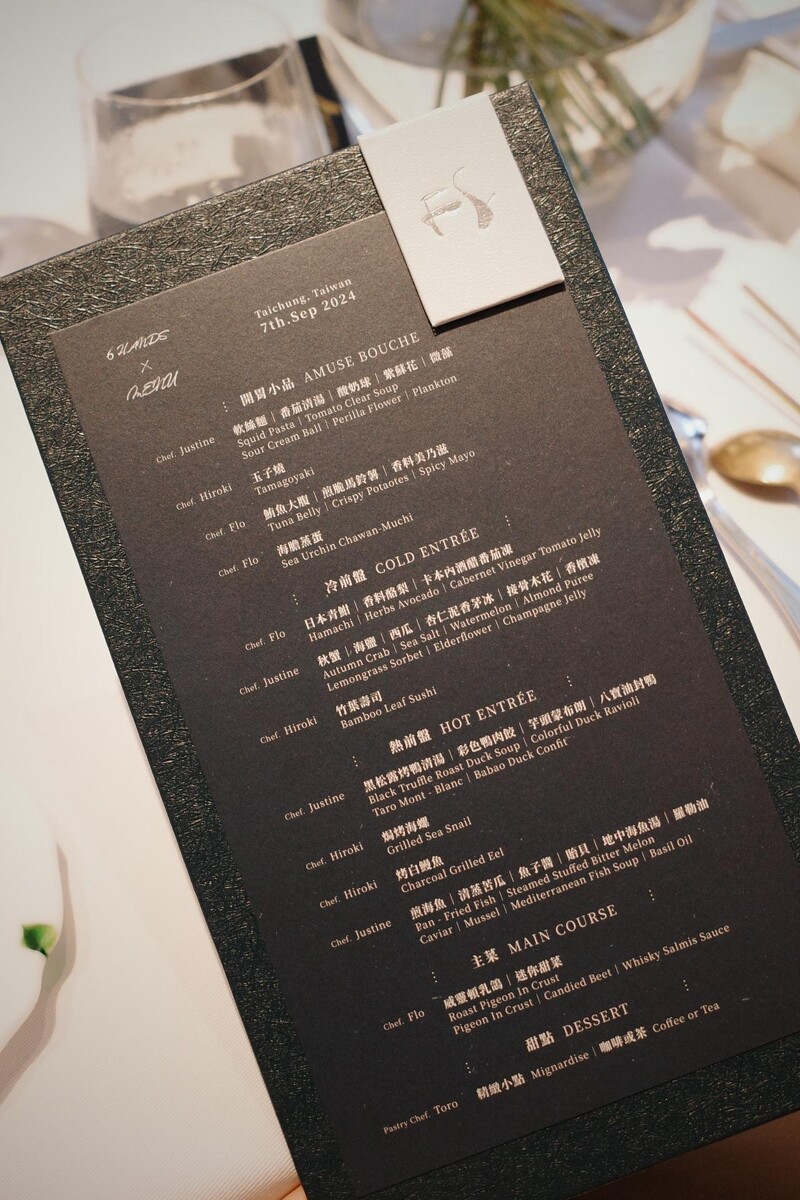 FS
Taichung, Taiwan
7th.Sep 2024
6 HANDS
×
MENU
開胃小品 AMUSE BOUCHE
Chef. Justine
軟絲麵｜番茄清湯｜酸奶球｜紫蘇花｜微藻
Squid Pasta | Tomato Clear Soup
Sour Cream Ball | Perilla Flower | Plankton
Chef. Hiroki
玉子燒
Tamagoyaki
Chef. Flo
鮪魚大腹｜煎脆馬鈴薯｜香料美乃滋
Tuna Belly | Crispy Potaotes | Spicy Mayo
Chef. Flo
海膽蒸蛋
Sea Urchin Chawan-Muchi
冷前盤 COLD ENTRÉE
Chef. Flo
日本青魽｜香料酪梨｜卡本內酒醋番茄凍
Hamachi | Herbs Avocado | Cabernet Vinegar Tomato Jelly
Chef. Justine
秋蟹｜海鹽｜西瓜｜杏仁泥香茅冰｜接骨木花｜香檳凍
Autumn Crab | Sea Salt | Watermelon | Almond Puree
Lemongrass Sorbet | Elderflower | Champagne Jelly
Chef. Hiroki
竹葉壽司
Bamboo Leaf Sushi
熱前盤 HOT ENTRÉE
Chef. Justine
黑松露烤鴨清湯｜彩色鴨肉餃｜芋頭蒙布朗｜八寶油封鴨
Black Truffle Roast Duck Soup | Colorful Duck Ravioli
Taro Mont - Blanc | Babao Duck Confit
Chef. Hiroki
焗烤海螺
Grilled Sea Snail
Chef. Hiroki
烤白鰻魚
Charcoal Grilled Eel
Chef. Justine
煎海魚｜清蒸苦瓜｜魚子醬｜貽貝｜地中海魚湯｜羅勒油
Pan - Fried Fish | Steamed Stuffed Bitter Melon
Caviar | Mussel | Mediterranean Fish Soup | Basil Oil
主菜 MAIN COURSE
Chef. Flo
威靈頓乳鴿｜迷你甜菜
Roast Pigeon In Crust
Pigeon In Crust | Candied Beet | Whisky Salmis Sauce
甜點 DESSERT
Pastry Chef. Toro
精緻小點 Mignardise｜咖啡或茶 Coffee or Tea